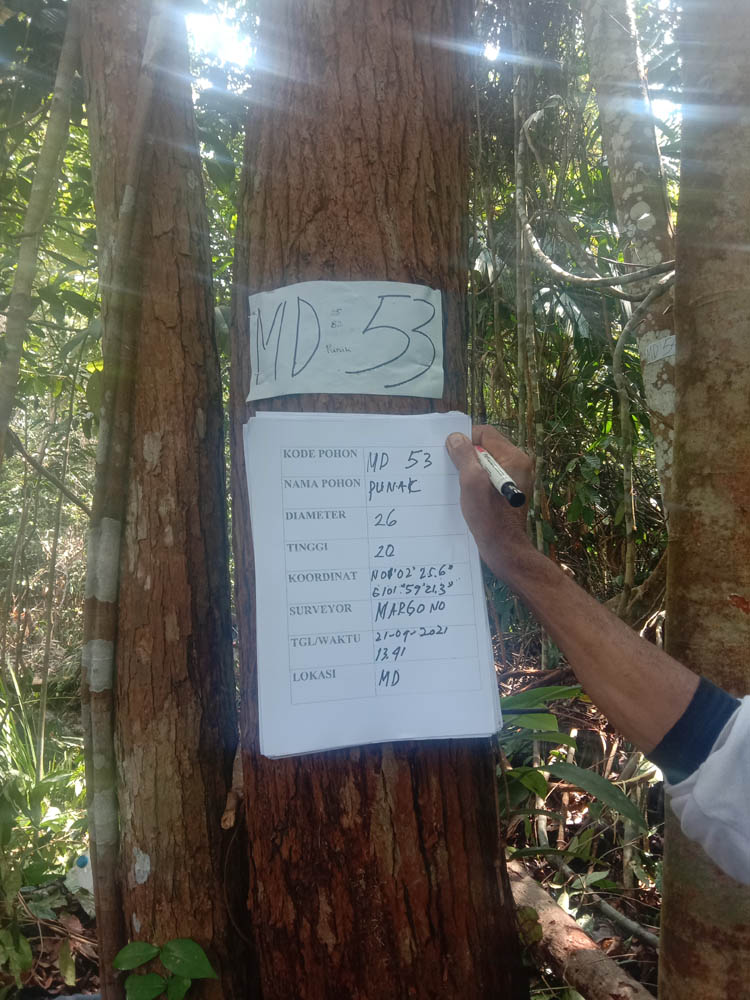 MD 53
Punak
KODE POHON MD 53
NAMA POHON PUNAK
DIAMETER 26
TINGGI 20
KOORDINAT N 01°02' 25.6"
E101°59'21.3"
SURVEYOR MARGONO
TGL/WAKTU 21-09-2021
13.41
LOKASI MD